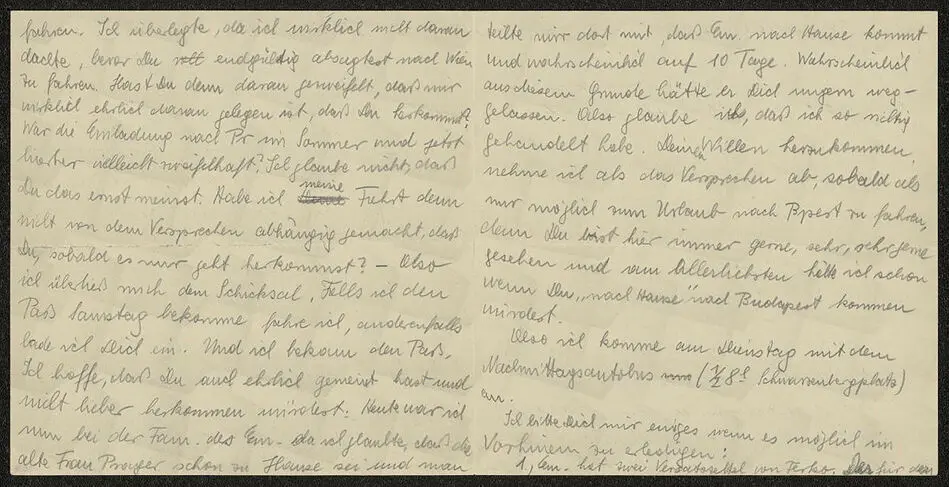 fahren. Ich überlegte, da ich wirklich nicht daran
dachte, bevor Du endgültig absagtest nach Wien
zu fahren. Hast Du denn daran gezweifelt, daß mir
wirklich ehrlich daran gelegen ist, daß Du herkommst?
War die Einladung nach Pr im Sommer und jetzt
hierher vielleicht zweifelhaft? Ich glaube nicht, daß
Du das ernst meinst. Habe ich meine Fahrt denn
nicht von dem Versprechen abhängig gemacht, daß
Du, sobald es nur geht herkommst? – Also
ich überließ mich dem Schicksal. Falls ich den
Paß Samstag bekomme fahre ich, anderenfalls
lade ich Dich ein. Und ich bekam den Paß.
Ich hoffe, daß Du auch ehrlich gemeint hast und
nicht lieber herkommen würdest. Heute war ich
nun bei der Fam. des Em. da ich glaubte, daß die
alte Frau schon zu Hause sei und man
teilte mir dort mit, daß Em. nach Hause kommt
und wahrscheinlich auf 10 Tage. Wahrscheinlich
aus diesem Grunde hätte er Dich ungern weg-
gelassen. Also glaube ich, daß ich so richtig
gehandelt habe. Deinen Willen herzukommen,
nehme ich als das Versprechen ab, sobald als
nur möglich zum Urlaub nach Bpest zu fahren,
denn Du bist hier immer gerne, sehr, sehr gerne
gesehen und am Allerliebsten hätte ich schon
wenn Du „nach Hause" nach Budapest kommen
würdest.
Also ich komme am Dienstag mit dem
Nachmittagsautobus (½ 8h Schwarzenbergplatz)
an.
Ich bitte Dich mir einiges wenn es möglich im
Vorhinein zu erledigen:
1, Em. hat zwei Versatzzettel von Ferko. für den